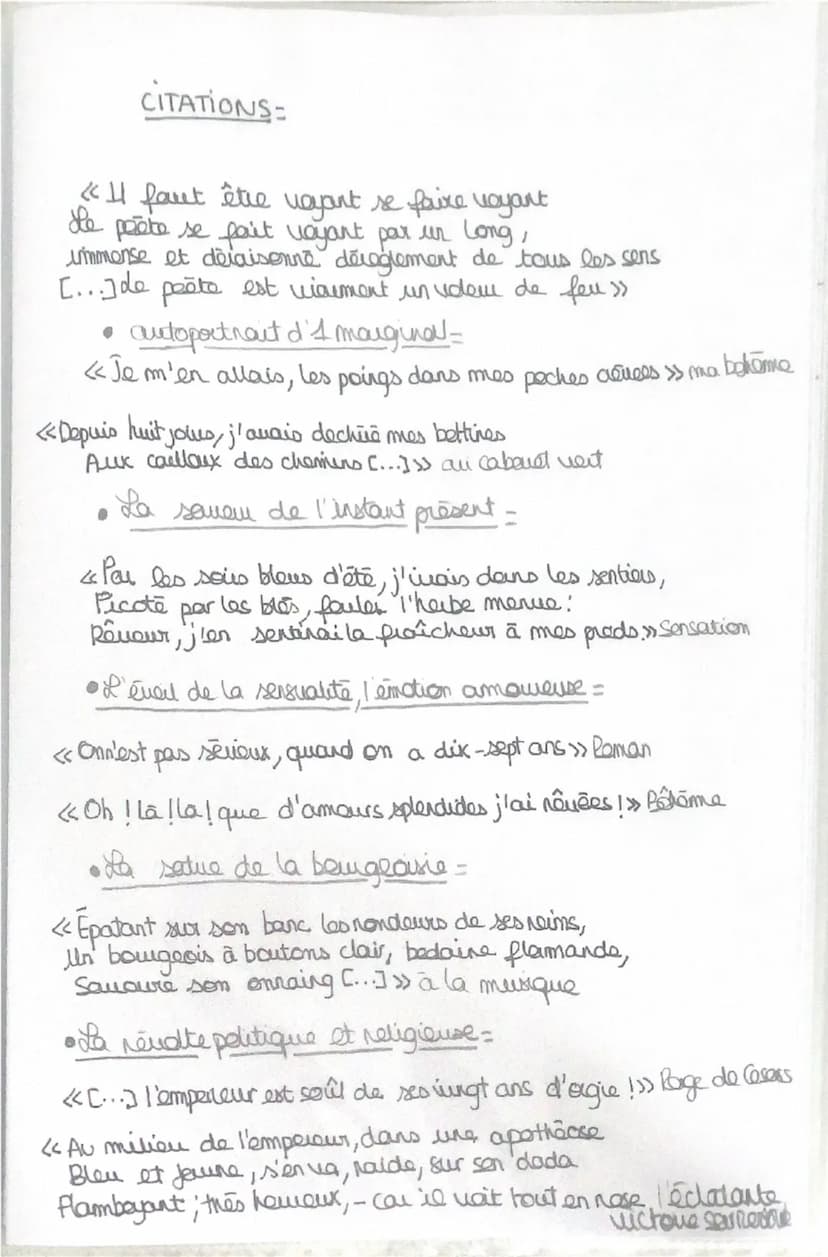 CITATIONS=
« Il faut être voyant se faire voyant
Le poète se fait voyant par un long,
immense et déraisonné dérèglement de tous les sens
[...] Le poète est vraiment un voleur de feu »
• autoportrait d'1 marginal=
« Je m'en allais, les poings dans mes poches crévees » ma bohème
« Depuis huit jours, j'avais dechiré mes bottines
Aux cailloux des chemins [...] » au cabaret vert
• La saveur de l'instant présent =
« Par les soirs bleus d'été, j'irais dans les sentiers,
Picoté par les blés, fouler l'herbe menue:
Rêveur, j'en sentirai la fraîcheur à mes pieds.» Sensation
• L'éveil de la sensualité, l'émotion amoureuse =
« On n'est pas sérieux, quand on a dix-sept ans » Roman
« Oh ! là ! la ! que d'amours splendides j'ai rêvées ! » Bôhème
• La satire de la bourgeoisie =
« Épatant sur son banc les rondeurs de ses reins,
Un bourgeois à boutons clair, bedaine flamande,
Savoure son onnaing [...] » à la musique
• La révolte politique et religieuse =
« [...] l'empereur est soûl de ses vingt ans d'orgie ! » Rage de Cesars
« Au milieu de l'empereur, dans une apothèose
Bleu et jaune, s'en va, raide, sur son dada
Flamboyant ; très heureux, - car il voit tout en rose l'éclatante
victoire